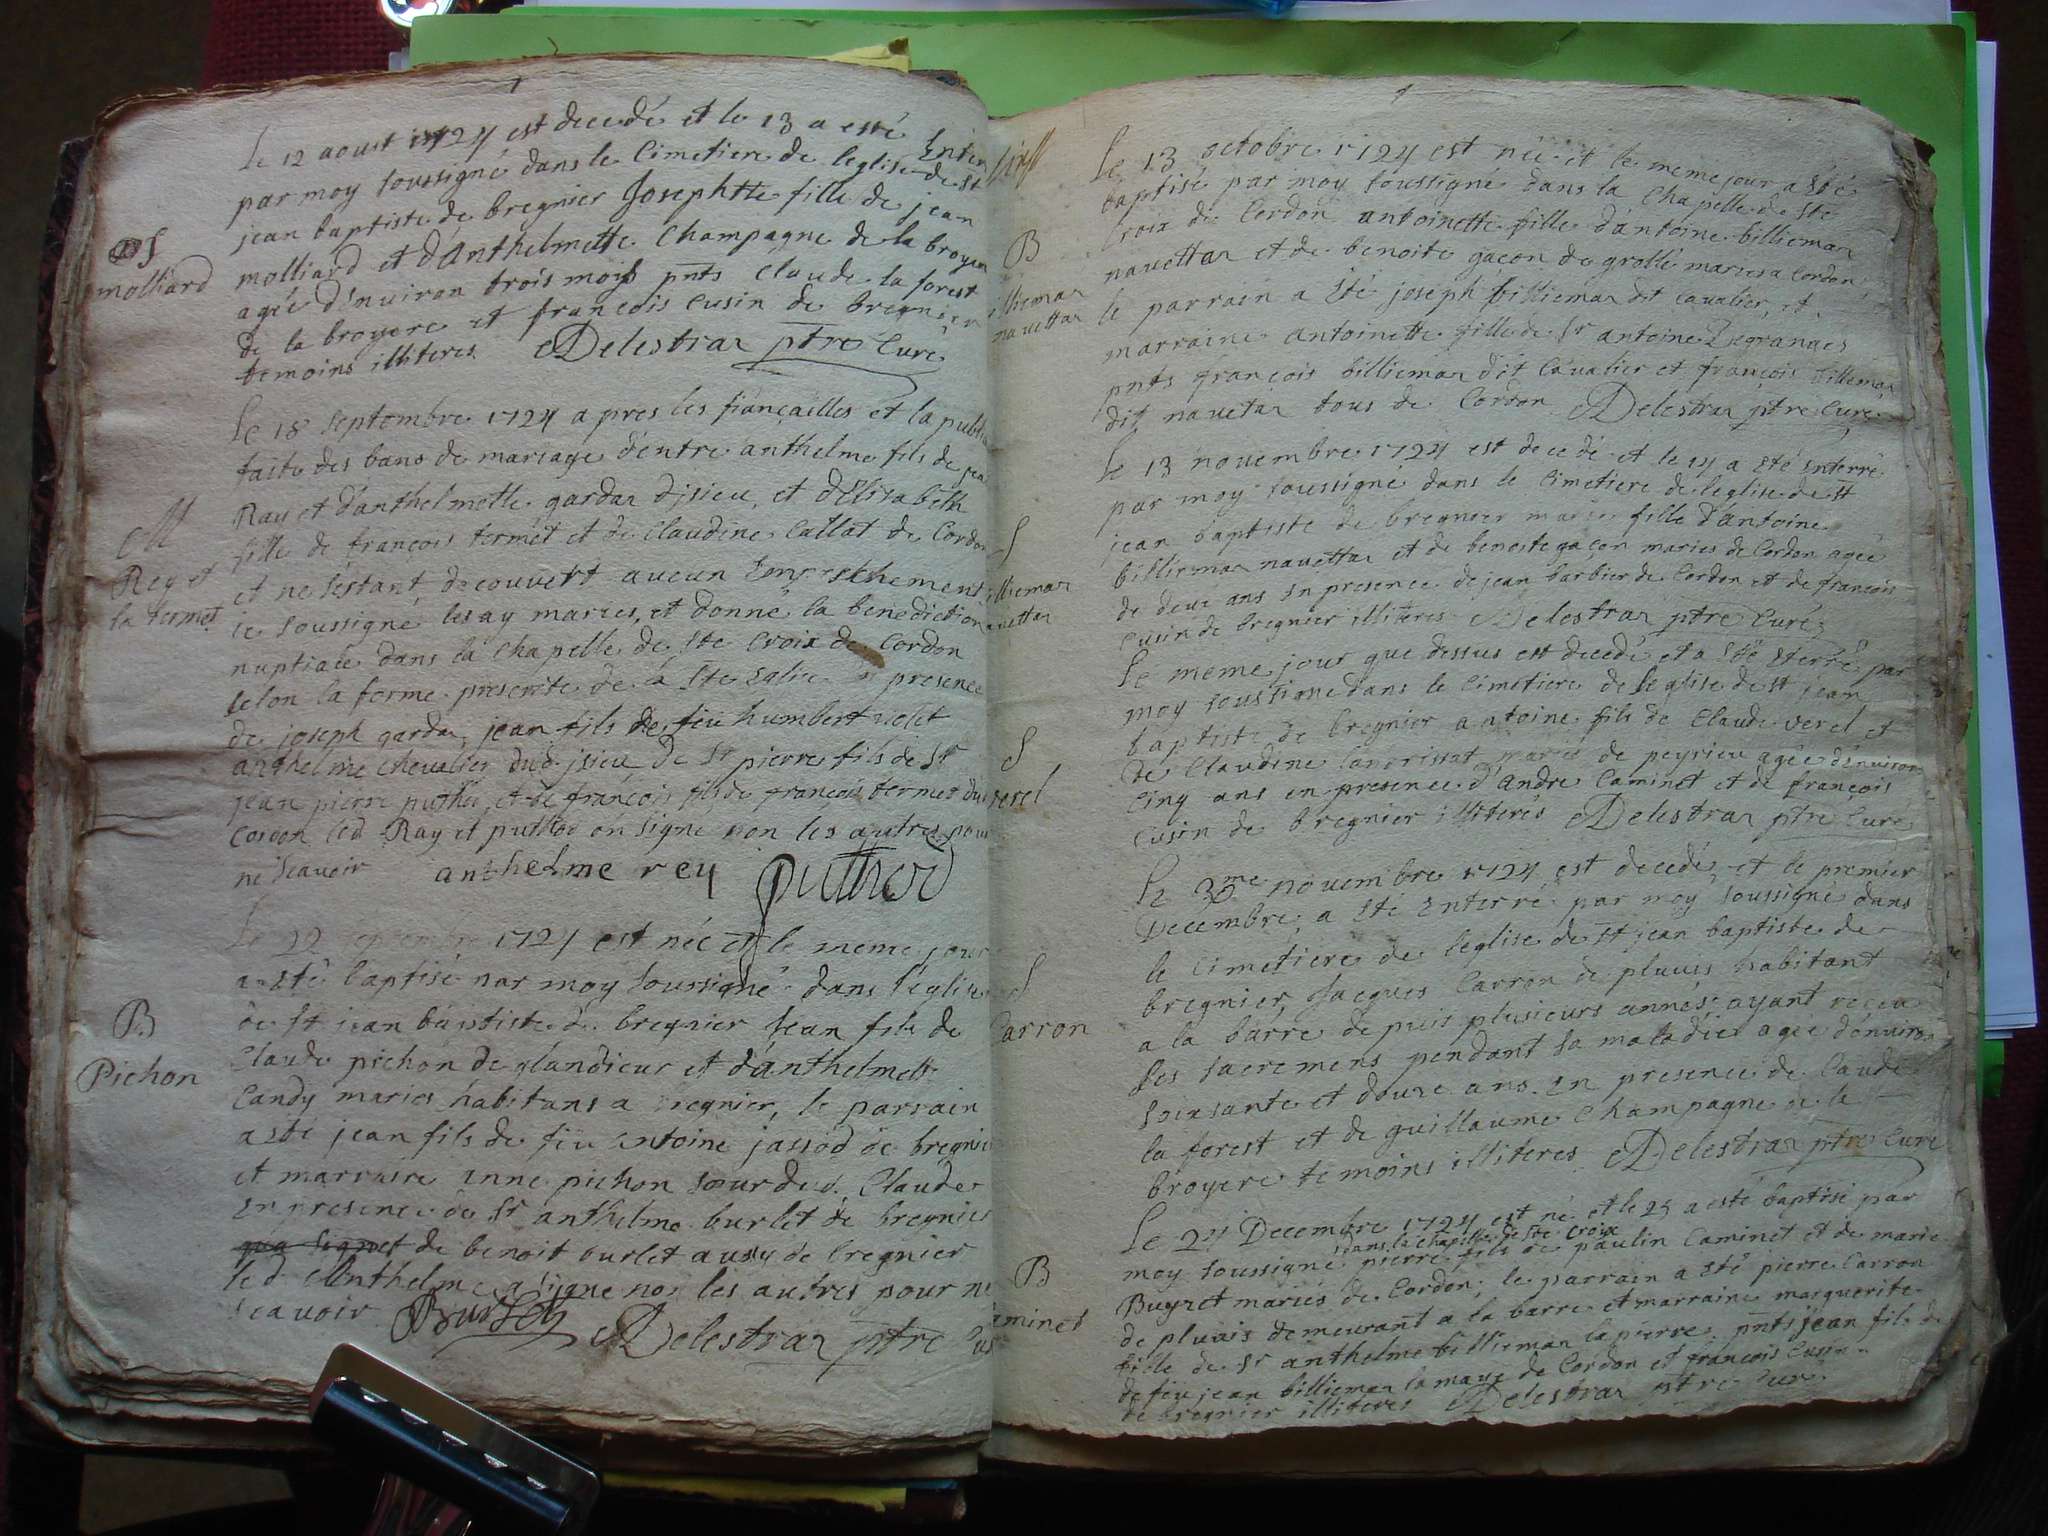 Le 12 aoust 1724 est decedé et le 13 a esté Enter
par moy soussigné dans le Cimetiere de leglise de St
jean baptiste de bregnier Josephtte fille de jean
molliard et d'Anthelmette Champagne de la broyer
agée d'enuiron trois mois pnts Claude la forest
de la broyere et françois Cusin de bregnier
temoins illiteres Delestraz ptre Curé
S
molliard
Le 18 septembre 1724 apres les fiançailles et la public
faite des bans de mariage d'entre anthelme fils de jean
Ray et d'anthelmette gardaz disieu, et d'Elisabeth
fille de françois termet et de Claudine Callat de Cordon
et ne s'estant decouvert aucun Empeschement
ie soussigné les ay maries, et donné la benediction
nuptiale dans la Chapelle de Ste Croix de Cordon
selon la forme prescrite de la Ste Eglise en presence
de joseph gardaz, jean fils de feu humbert
anthelme chevalier dud. jsieu de Sr pierre fils de Sr
jean pierre puthod et de françois fils de françois termet dud
Cordon led Ray et puthod on signé non les autres pour
ne scauoir anthelme rey puthod
M
Rey et
la termet
Le 22 septembre 1724 est néé et le meme jour
a esté baptisé par moy soussigné dans l'église
de St jean baptiste de bregnier jean fils de
Claude pichon de glandieux et d'anthelmette
Candy maries habitans a bregnier, le parrain
a esté jean fils de feu antoine jassod de bregnier
et marraine anne pichon soeur dud. Claude
En presence de Sr anthelme burlet de bregnier
de benoit burlet aussy de bregnier
led Anthelme a signé non les autres pour ne
scauoir Burlet Delestraz ptre Cur
B
Pichon
Le 13 octobre 1724 est néé et le meme jour a Eté
baptisé par moy soussigné dans la Chapelle de Ste
Croix de Cordon antoinette fille d'antoine billiemaz
navettaz et de benoite gaçon de grolle maries a Cordon,
le parrain a Eté joseph billiemaz dit Cavalier, et
marraine antoinette fille de Sr antoine
pnts françois billiemaz dit Caualier et françois billiemaz
dit navetaz tous de Cordon Delestraz ptre Curé
B
navettaz
Le 13 novembre 1724 est decedé et le 14 a Eté Enterré
par moy soussigné dans le Cimetiere de leglise de St
jean baptiste de bregnier marie fille d'antoine
billiemaz navettaz et de benoite gaçon maries de Cordon agée
de deux ans En presence de jean barbier de Cordon et de françois
Cusin de bregnier illiteres Delestraz ptre Curé
S
Le meme jour que dessus est decedé et a Eté Eterré par
moy soussigné dans le Cimetiere de leglise de St jean
baptiste de bregnier antoine fils de Claude verel et
de Claudine maries de peyrieu agée d'enuiron
Cinq ans en presence d'andre Caminet et de françois
Cusin de bregnier illiterés Delestraz ptre Curé
S
verel
Le 30me novembre 1724 est decedé, et le premier
Decembre, a Eté Enterré par moy soussigné dans
le Cimetiere de leglise de St jean baptiste de
bregnier, Jacques Carron de pluuis habitant
a la barre de puis plusieurs années ayant reçeu
les sacremens pendant sa maladie agée d'enuiron
soixsante et douze ans. En presence de Claude
la forest et de guillaume Champagne de la
broyere temoins illiteres Delestraz ptre Curé
S
Carron
Le 24 Decembre 1724 est né et le 25 a esté baptisé par
dans la chapelle de Ste Croix
moy soussigné pierre fils de paulin Caminet et de marie
Buyzet mariés de Cordon; le parrain a Eté pierre Carron
de pluuis demeurant a la barre et marraine marguerite
fille de Sr anthelme billiemaz lapierre, pnts jean fils de
de feu jean billiemaz la maye de Cordon et françois Cusin
de bregnier illiteres Delestraz ptre Cure
B
aminet